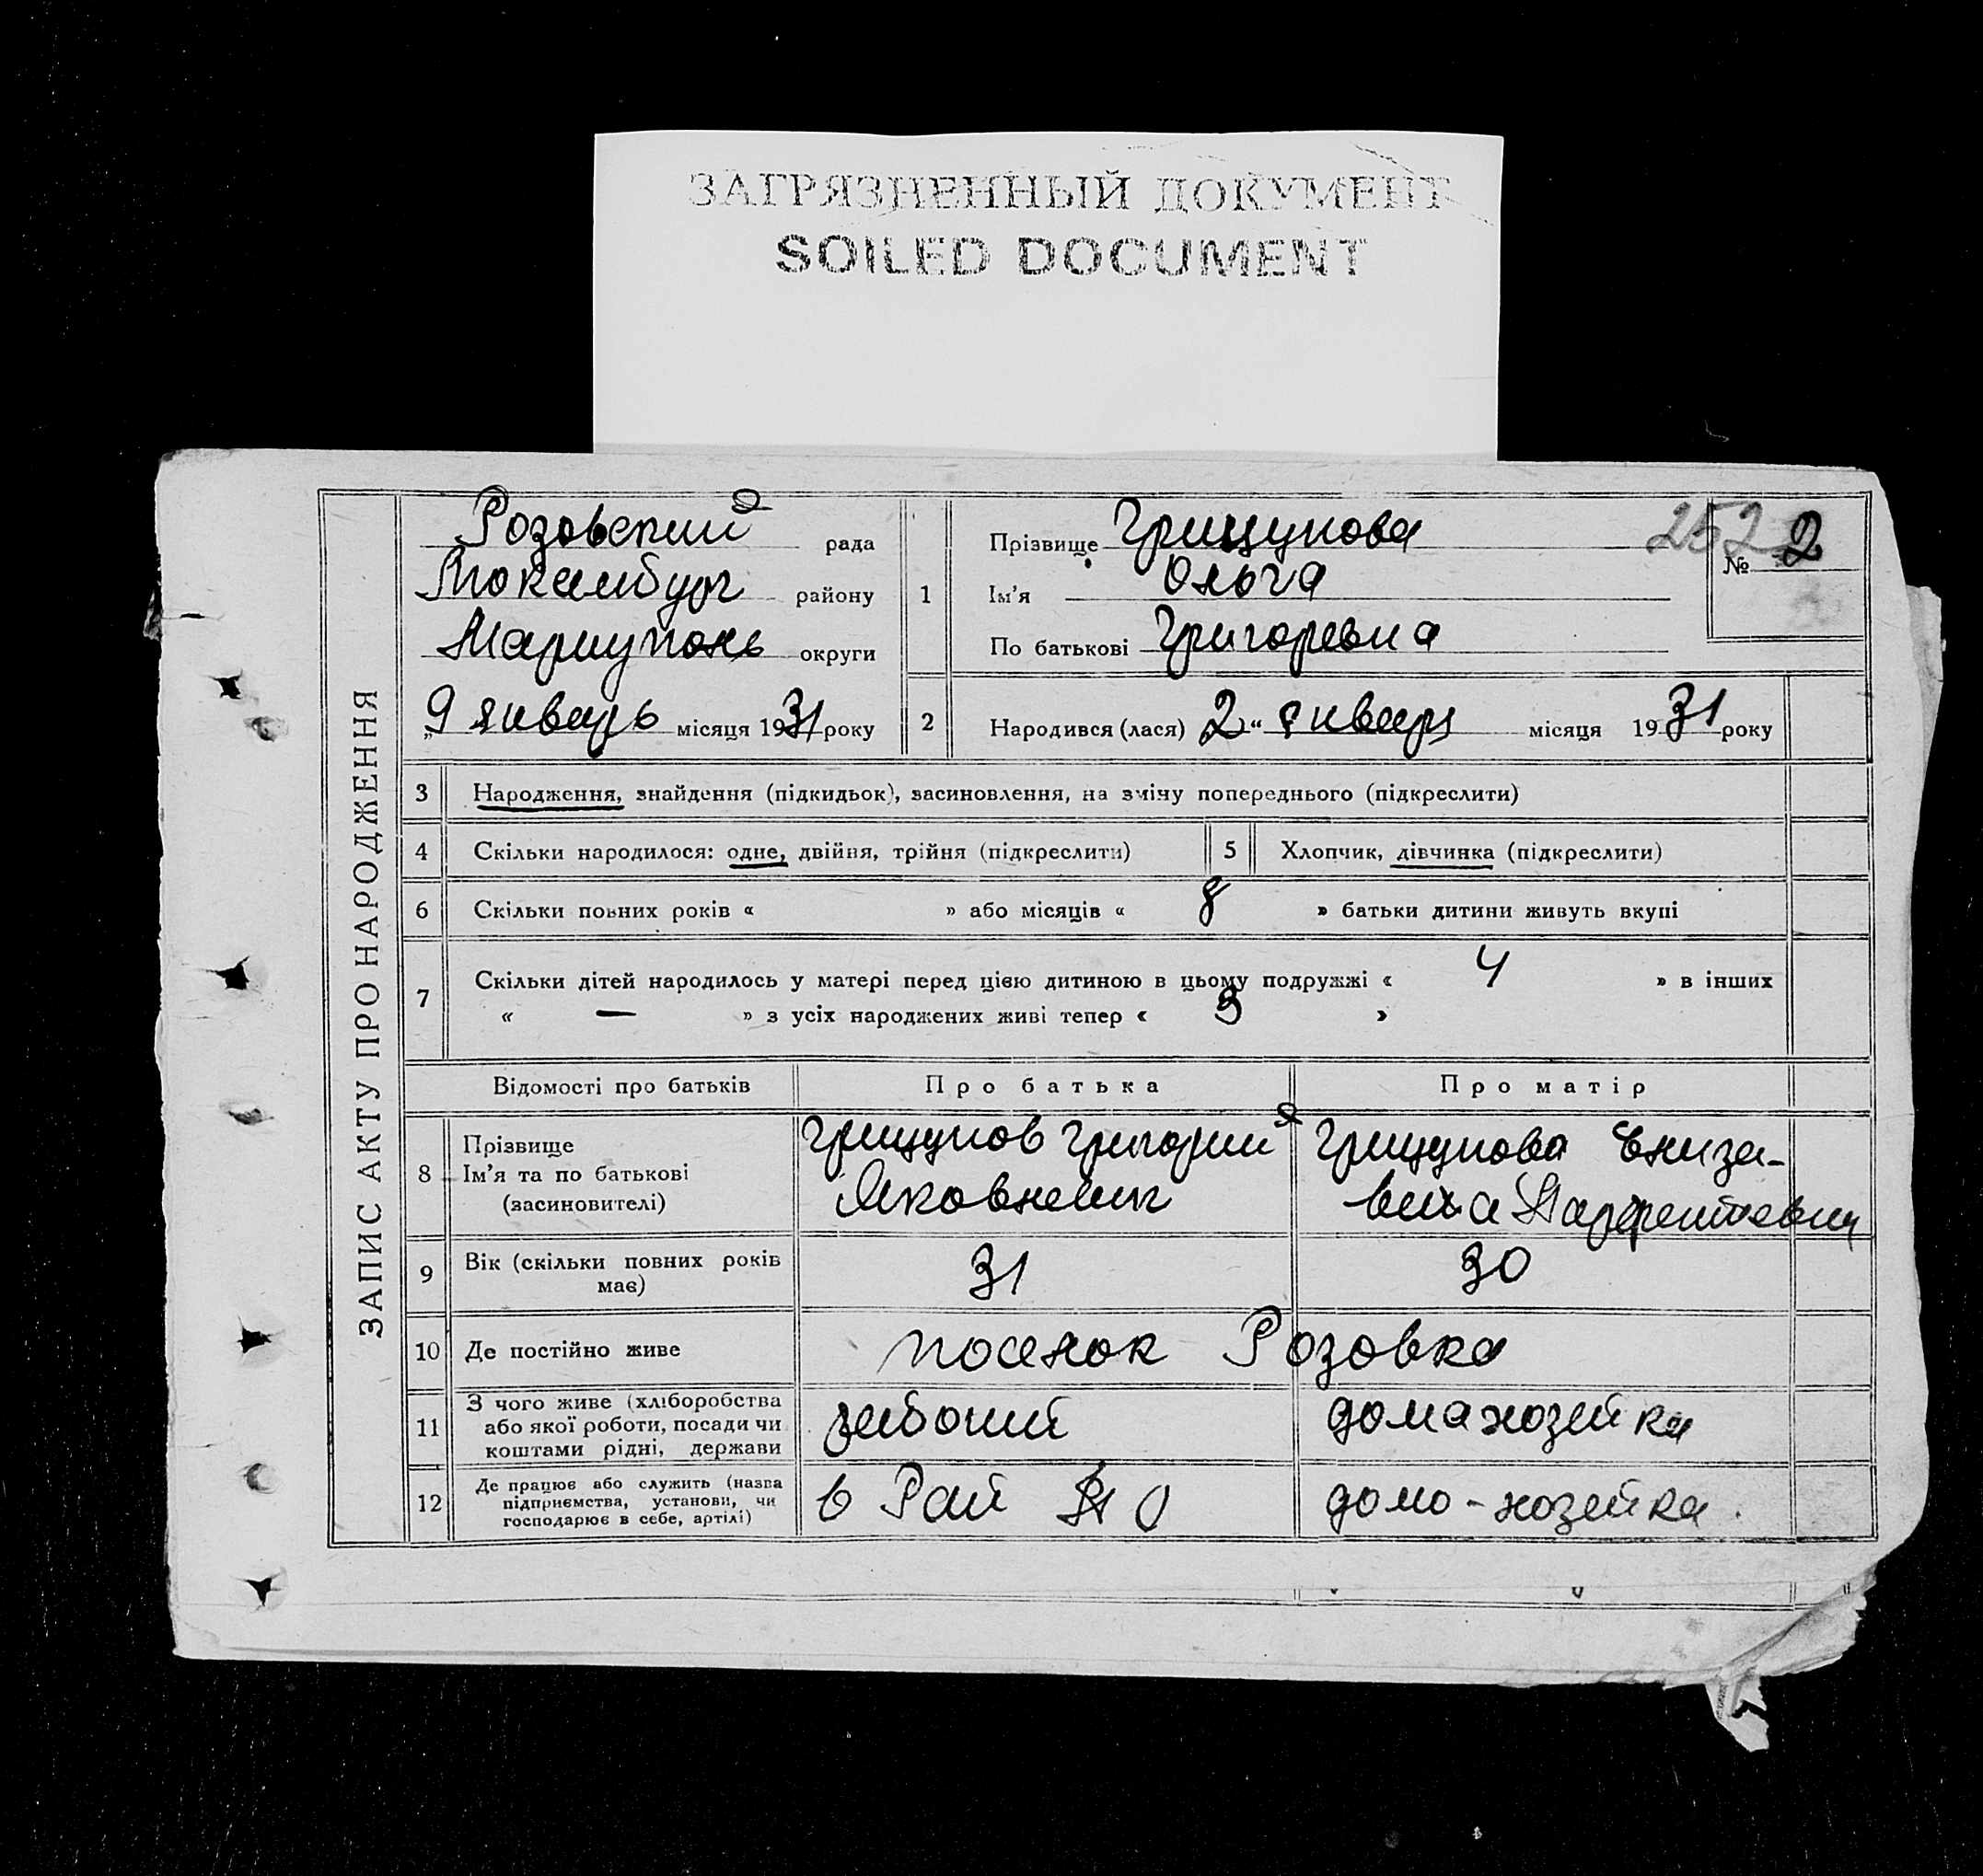 ЗАГРЯЗНЕННЫЙ ДОКУМЕНТ
SOILED DOCUMENT
ЗАПИС АКТУ ПРО НАРОДЖЕННЯ
Розовский рада
району
Мариуполь округи
„9 январь місяця 1931 року
252
№ 2
1
Прізвище Грищукова
Ім'я Ольга
По батькові Григоревна
2 Народився (лася) 2 “ январ місяця 1931 року
3 Народження, знайдення (підкидьок), засиновлення, на зміну попереднього (підкреслити)
4 Скільки народилося: одне, двійня, трійня (підкреслити) 5 Хлопчик, дівчинка (підкреслити)
6 Скільки повних років « » або місяців « 8 » батьки дитини живуть вкупі
7 Скільки дітей народилось у матері перед цією дитиною в цьому подружжі « 4 » в інших
« — » з усіх народжених живі тепер « 3 »
Відомості про батьків Про батька Про матір
8 Прізвище
Ім'я та по батькові
(засиновителі)
Грищуков Григорий
Яковлевич
Грищукова Елиза-
вета
9 Вік (скільки повних років
має)
31 30
10 Де постійно живе поселок Розовка
11 З чого живе (хліборобства
або якої роботи, посади чи
коштами рідні, держави
рабочий домахозейка
12 Де працює або служить (назва
підприємства, установи, чи
господарює в себе, артілі)
в Рай домо-хозейка.